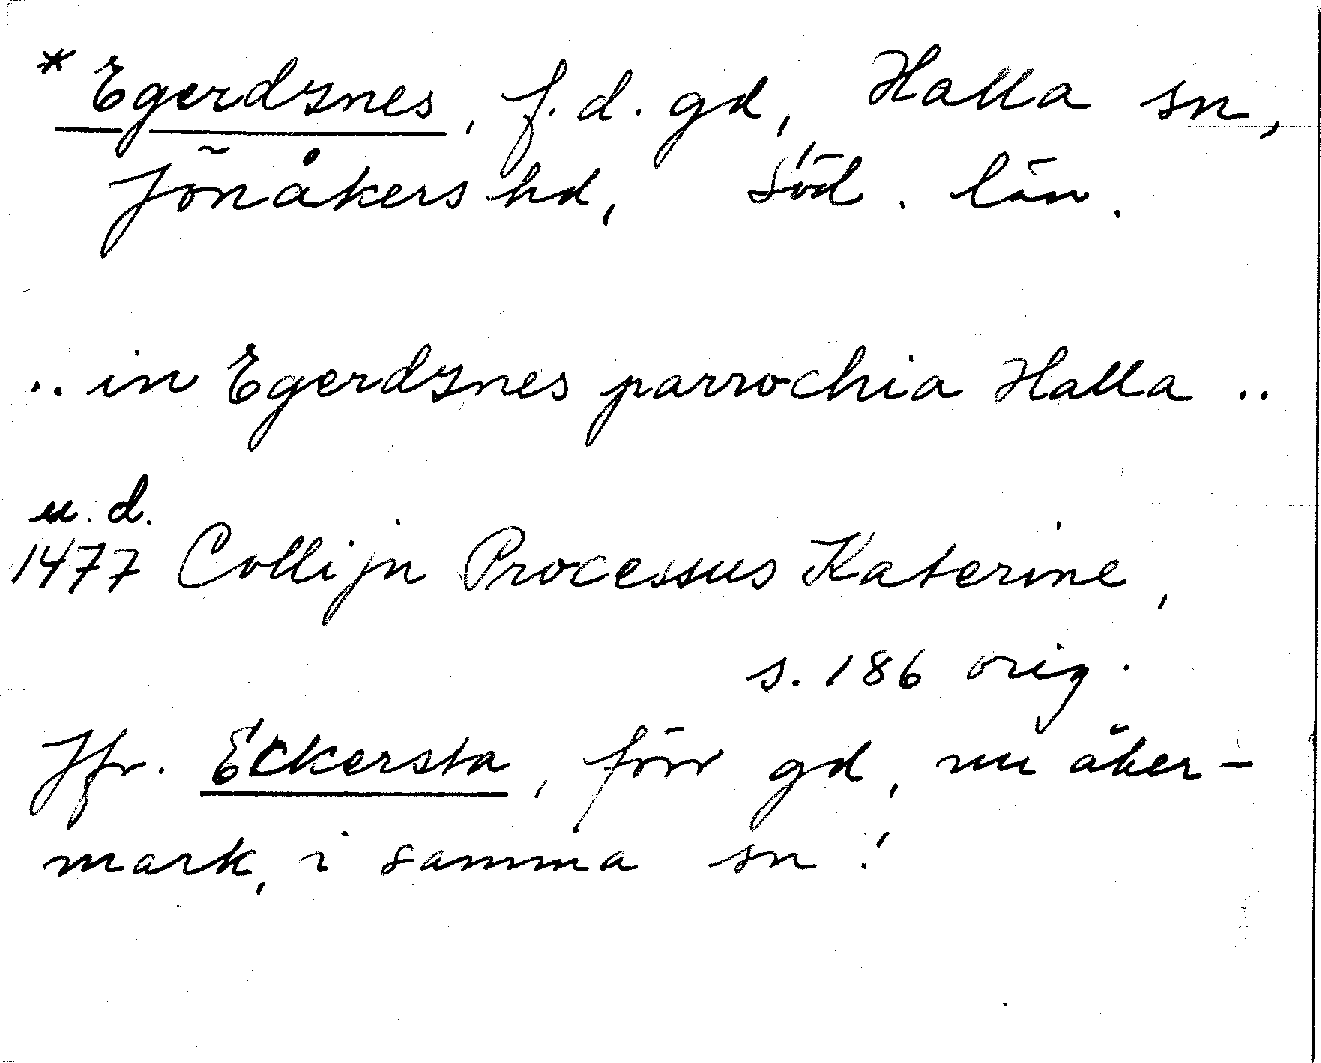 *Egerdznes, f.d. gd, Halla sn,
Jönåkers hd, Söd. län.
.. in Egerdznes parrochia Halla ..
u.d.
1477 Collijn Processus Katerine,
s. 186 orig.
Jfr. Eckersta, förr gd, nu åker-
mark, i samma sn!